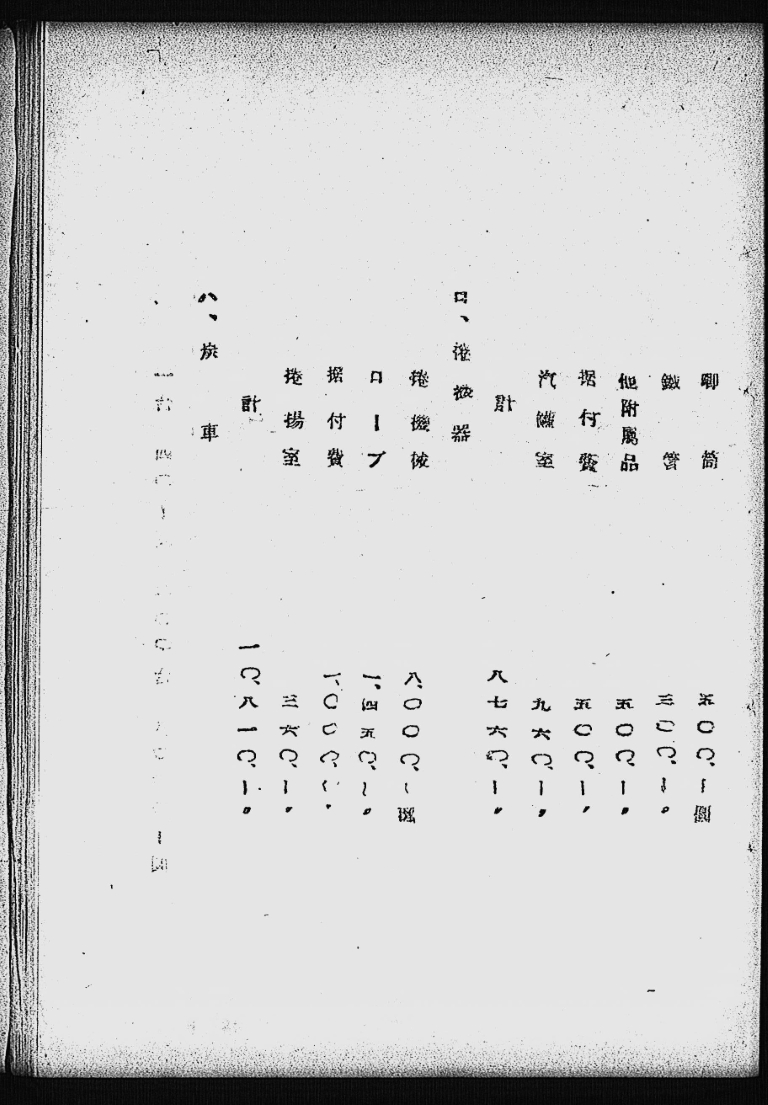 卿筒 五〇〇、ー圓
鐵管 三〇〇、ー〃
他附属品 五〇〇、ー〃
据付費 五〇〇、ー〃
汽罐室 九六〇、ー〃
計 八七六〇、ー〃
ロ、捲機器
捲機械 八、〇〇〇、ー圓
ロープ 一、四五〇、ー〃
据付費 一、〇〇〇、ー〃
捲揚室 三六〇、ー〃
計 一〇、八一〇、ー〃
ハ、炭車